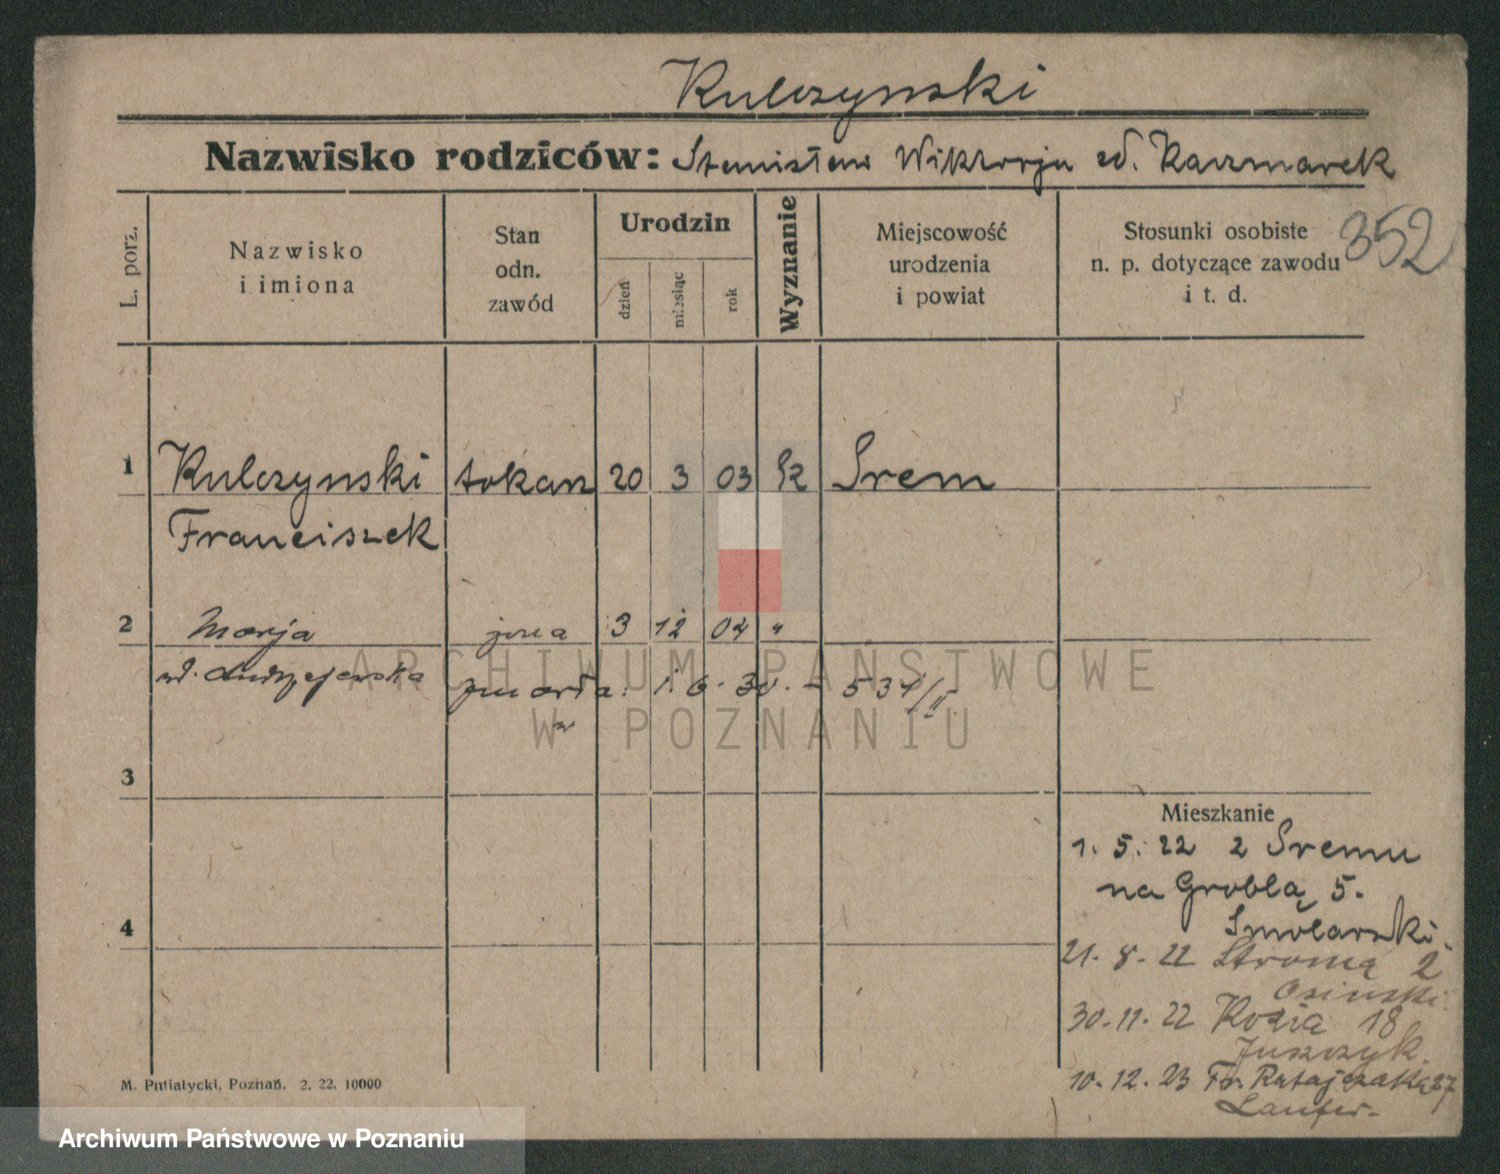 Kulczynski
Nazwisko rodziców: Stanisław Wiktorja ud. Kaczmarek
L. porz.
Nazwisko
i imiona
Stan
odn.
zawód
Urodzin
dzień
miesiąc
rok
Wyznanie
Miejscowość
urodzenia
i powiat
Stosunki osobiste
n. p. dotyczące zawodu
i t. d.
352
1 Kulczynski tokarz 20 3 03 Srem
Franciszek
2 Marja żona 3 12 04 "
Andrzejewska zmarła 1. 6. 30. - 531/II
ARCHIWUM PAŃSTWOWE
W POZNANIU
3
Mieszkanie
1. 5. 22 z Sremu
na Groblą 5.
4
Smolarski.
21. 8. 22 Stromą 2
Osinski
30. 11. 22 Kozia 18
Juszczyk.
10. 12. 23 Fr. Ratajczaka 37
Laufer.
M. Putiatycki, Poznań. 2. 22. 10000
Archiwum Państwowe w Poznaniu